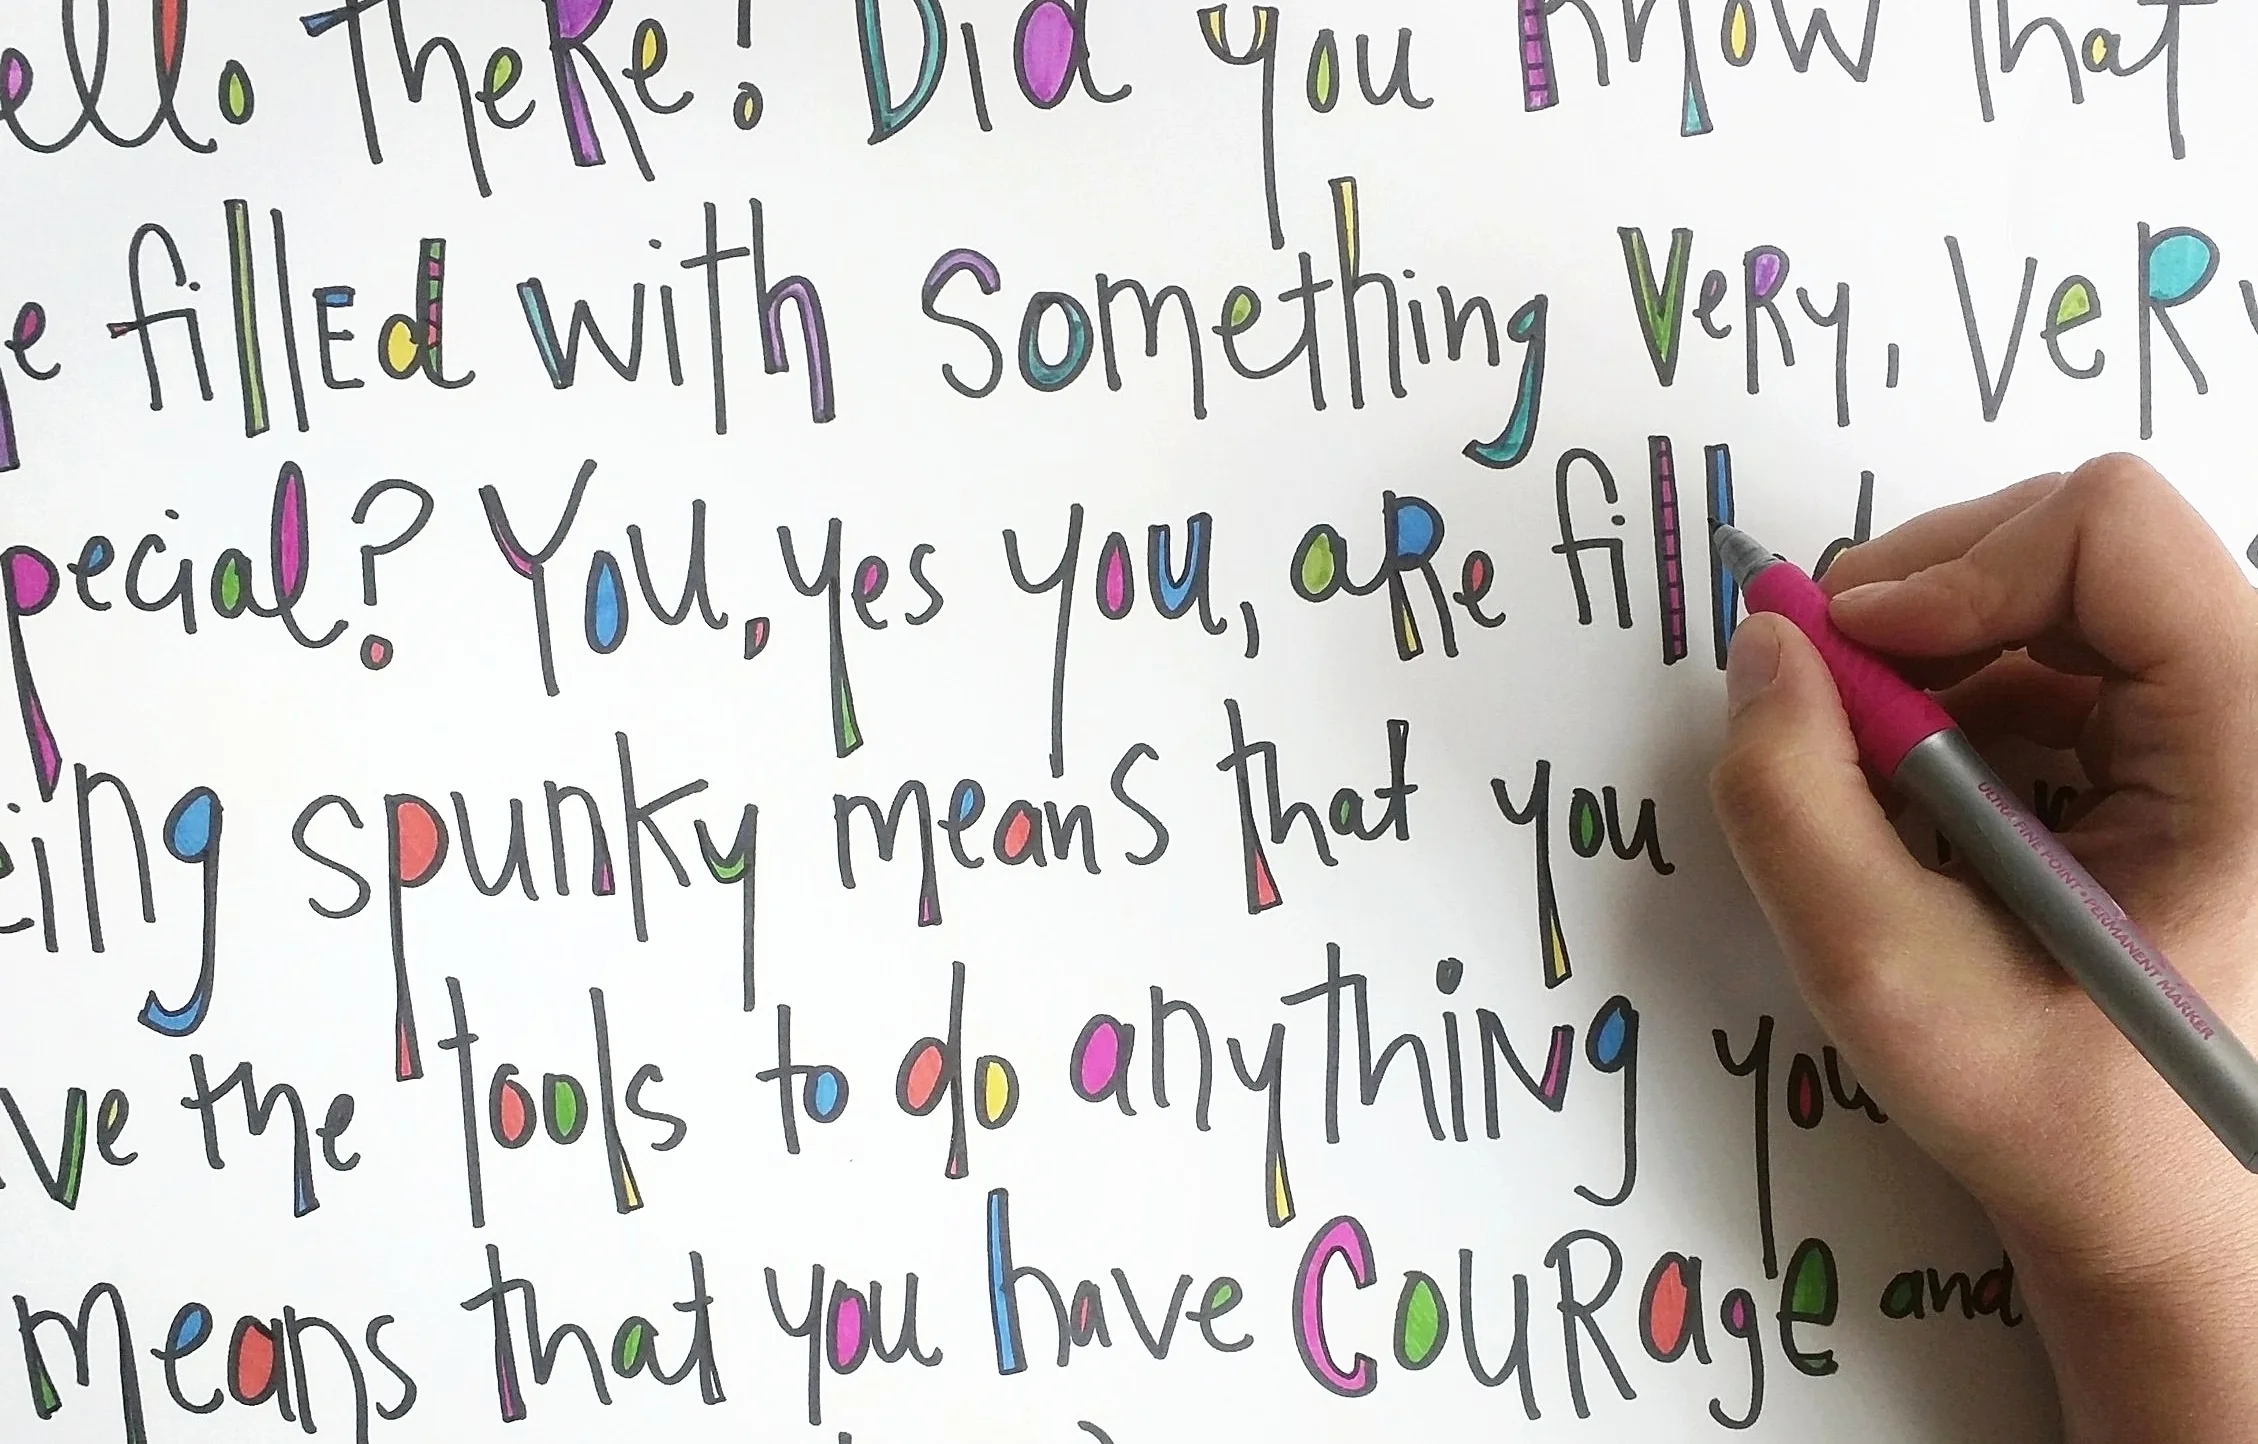 ello theRe! Did you know that
e fillEd with Something VeRy, VeRy
pecial? You, yes you, aRe filled
eing spunky means that you
ve the tools to do anything you
means that you have CouRage and
ULTRA FINE POINT • PERMANENT MARKER